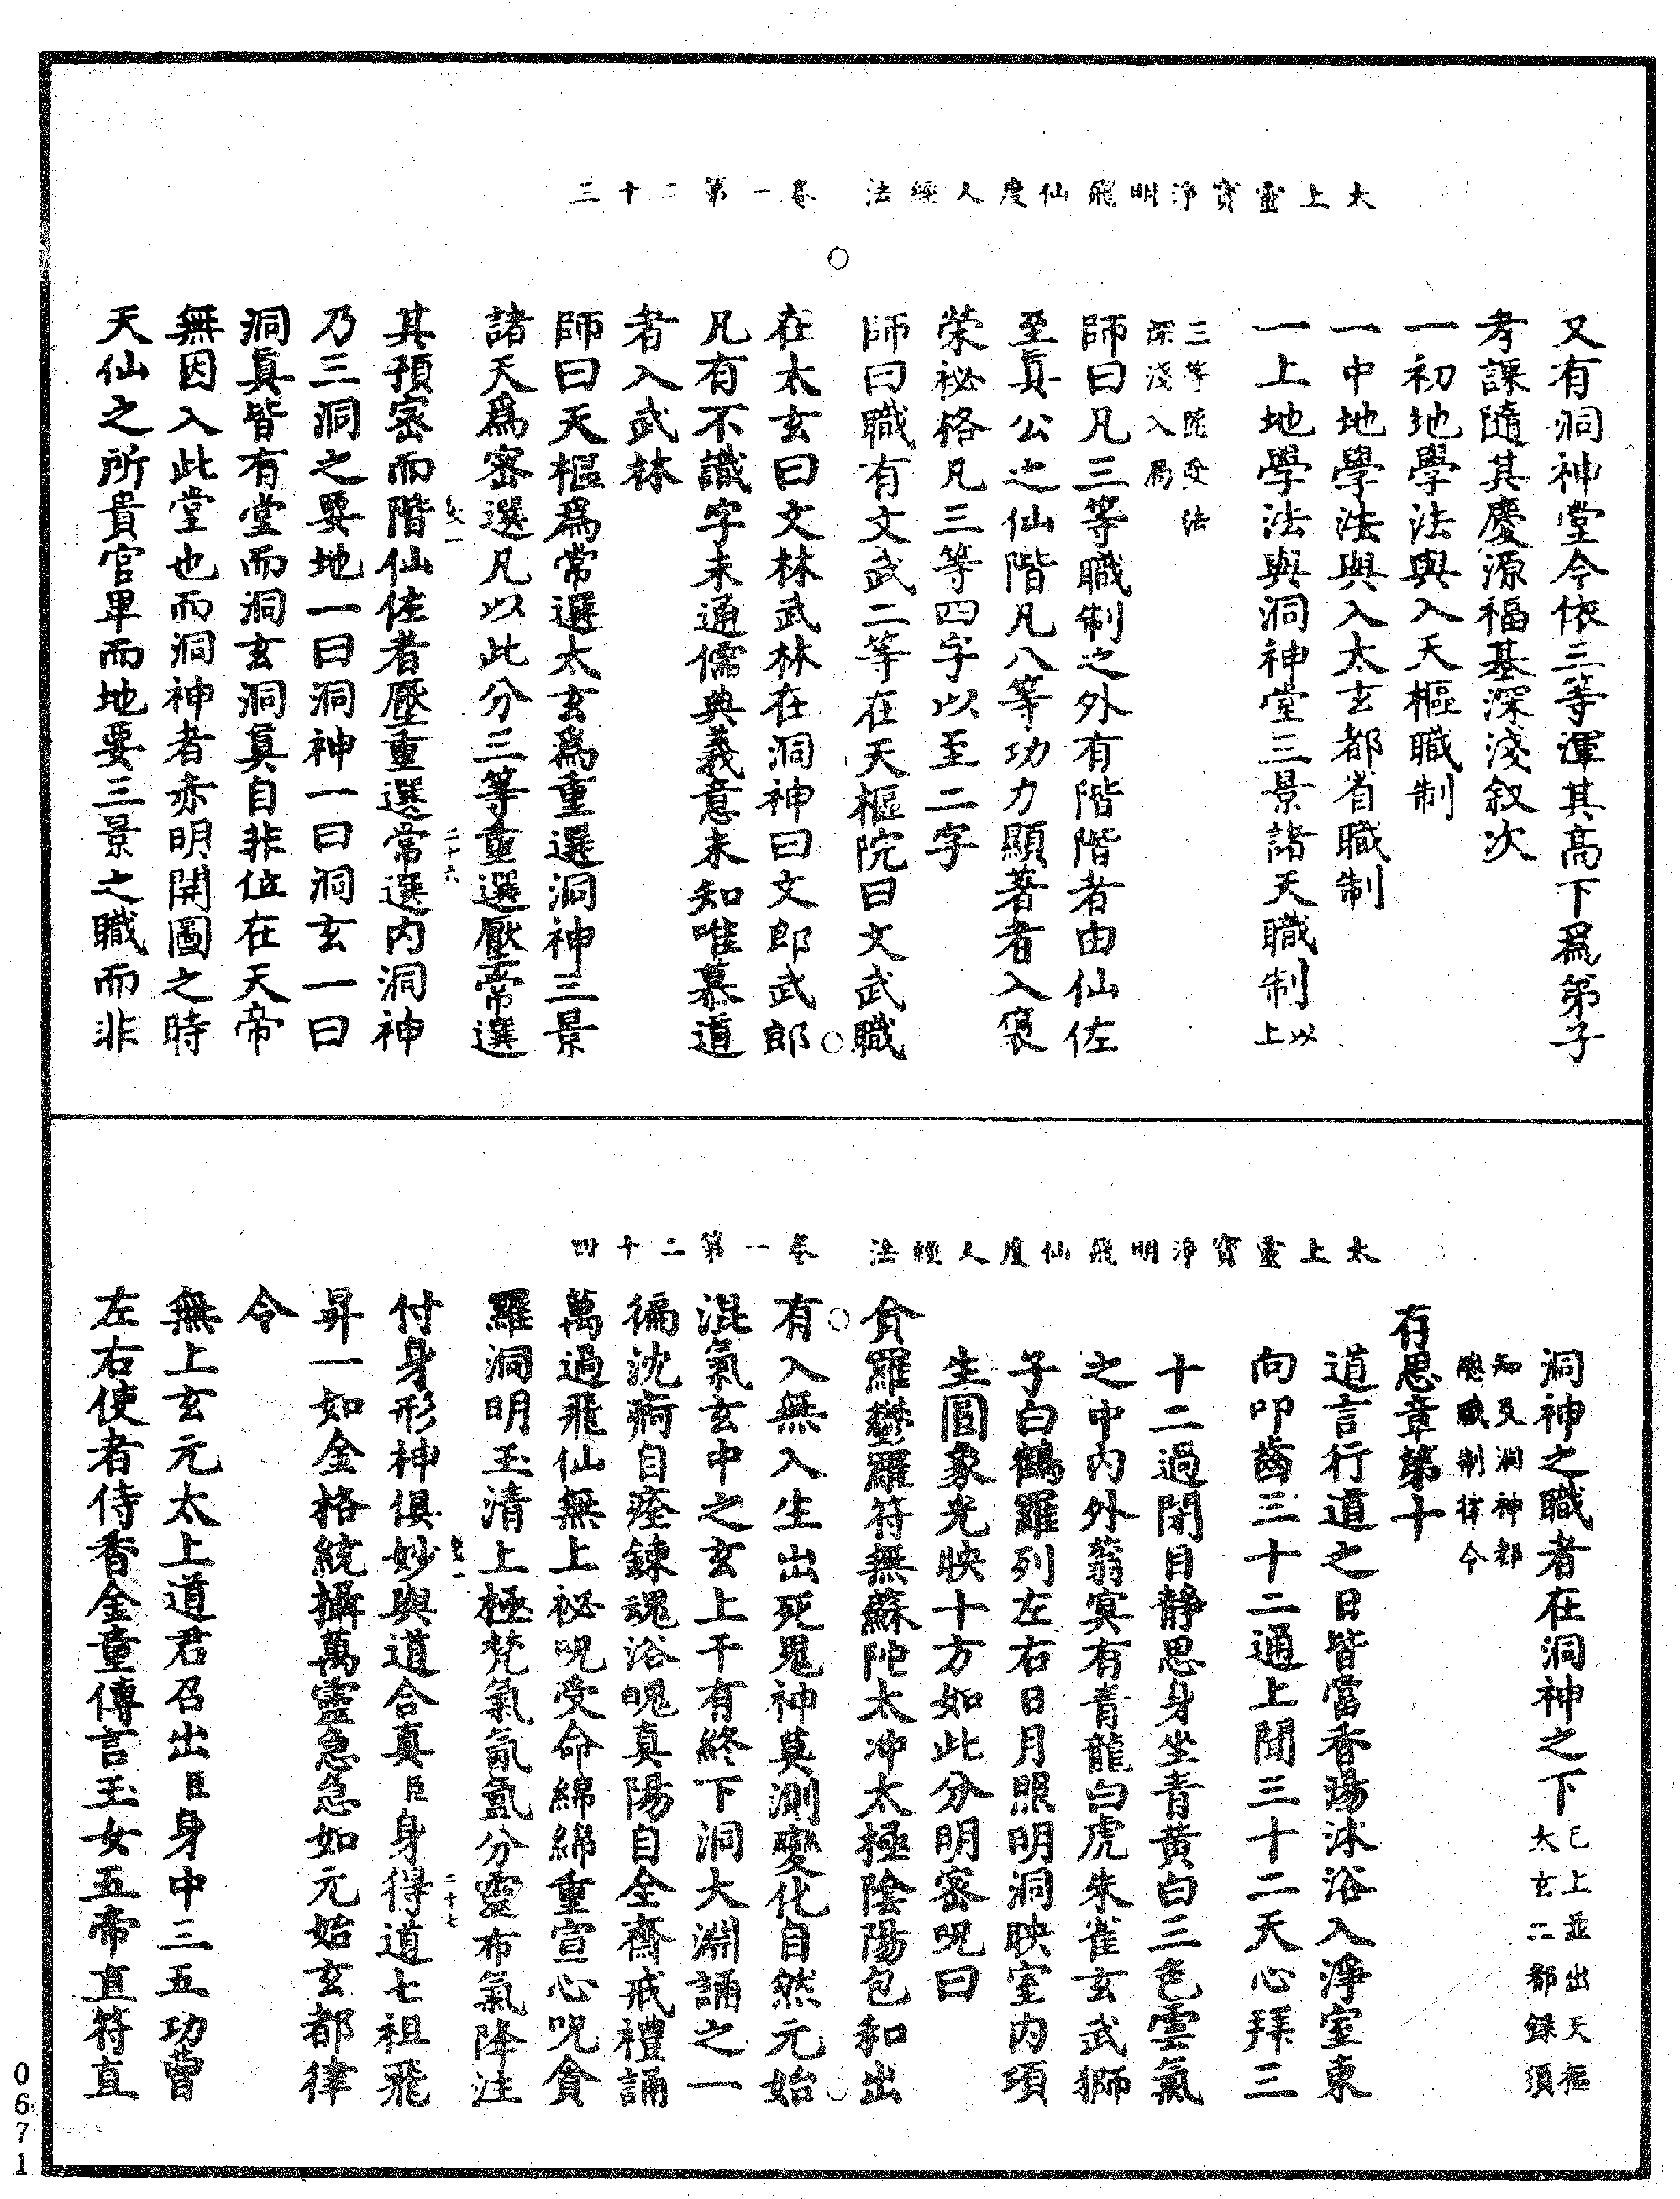 太上靈寶淨明飛仙度人經法　卷一第二十三
又有洞神堂今依三等渾其高下爲弟子
考課隨其慶源福基深淺叙次
一初地學法與入天樞職制
一中地學法與入太玄都省職制
一上地學法與洞神堂三景諸天職制以上
三等隨受法
深淺入爲
師曰凡三等職制之外有階階者由仙佐
至眞公之仙階凡八等功力顯著者入褒
榮祕格凡三等四字以至二字
師曰職有文武二等在天樞院曰文武職
在太玄曰文林武林在洞神曰文郎武郎
凡有不識字未通儒典義意未知唯慕道
者入武林
師曰天樞爲常選太玄爲重選洞神三景
諸天爲密選凡以此分三等重選厭常選
卷一　二十六
其預密而階仙佐者壓重選常選內洞神
乃三洞之要地一曰洞神一曰洞玄一曰
洞眞皆有堂而洞玄洞眞自非位在天帝
無因入此堂也而洞神者赤明開圖之時
天仙之所貴官卑而地要三景之職而非
太上靈寶淨明飛仙度人經法　卷一第二十四
洞神之職者在洞神之下已上並出天樞
太玄二都錄須
知及洞神都
總職制律令
存思章第十
道言行道之日皆當香陽沐浴入淨室東
向叩齒三十二通上聞三十二天心拜三
十二過閉目靜思身坐青黃白三色雲氣
之中內外蓊冥有青龍白虎朱雀玄武獅
子白鶴羅列左右日月照明洞映室內項
生圓象光映十方如此分明密呪曰
貪羅鬱羅符無蘇陀太冲太極陰陽包和出
有入無入生出死鬼神莫測變化自然元始
混氣玄中之玄上干有終下洞大淵誦之一
徧沈痾自痊鍊魂浴魄真陽自全齋戒禮誦
萬過飛仙無上祕呪受命綿綿重宣心呪貪
羅洞明玉清上極梵氣氤氳分靈布氣降注
卷一　二十七
付身形神俱妙與道合真臣身得道七祖飛
昇一如金格統攝萬靈急急如元始玄都律
令
無上玄元太上道君召出臣身中三五功曹
左右使者侍香金童傳言玉女五帝直符直
0671